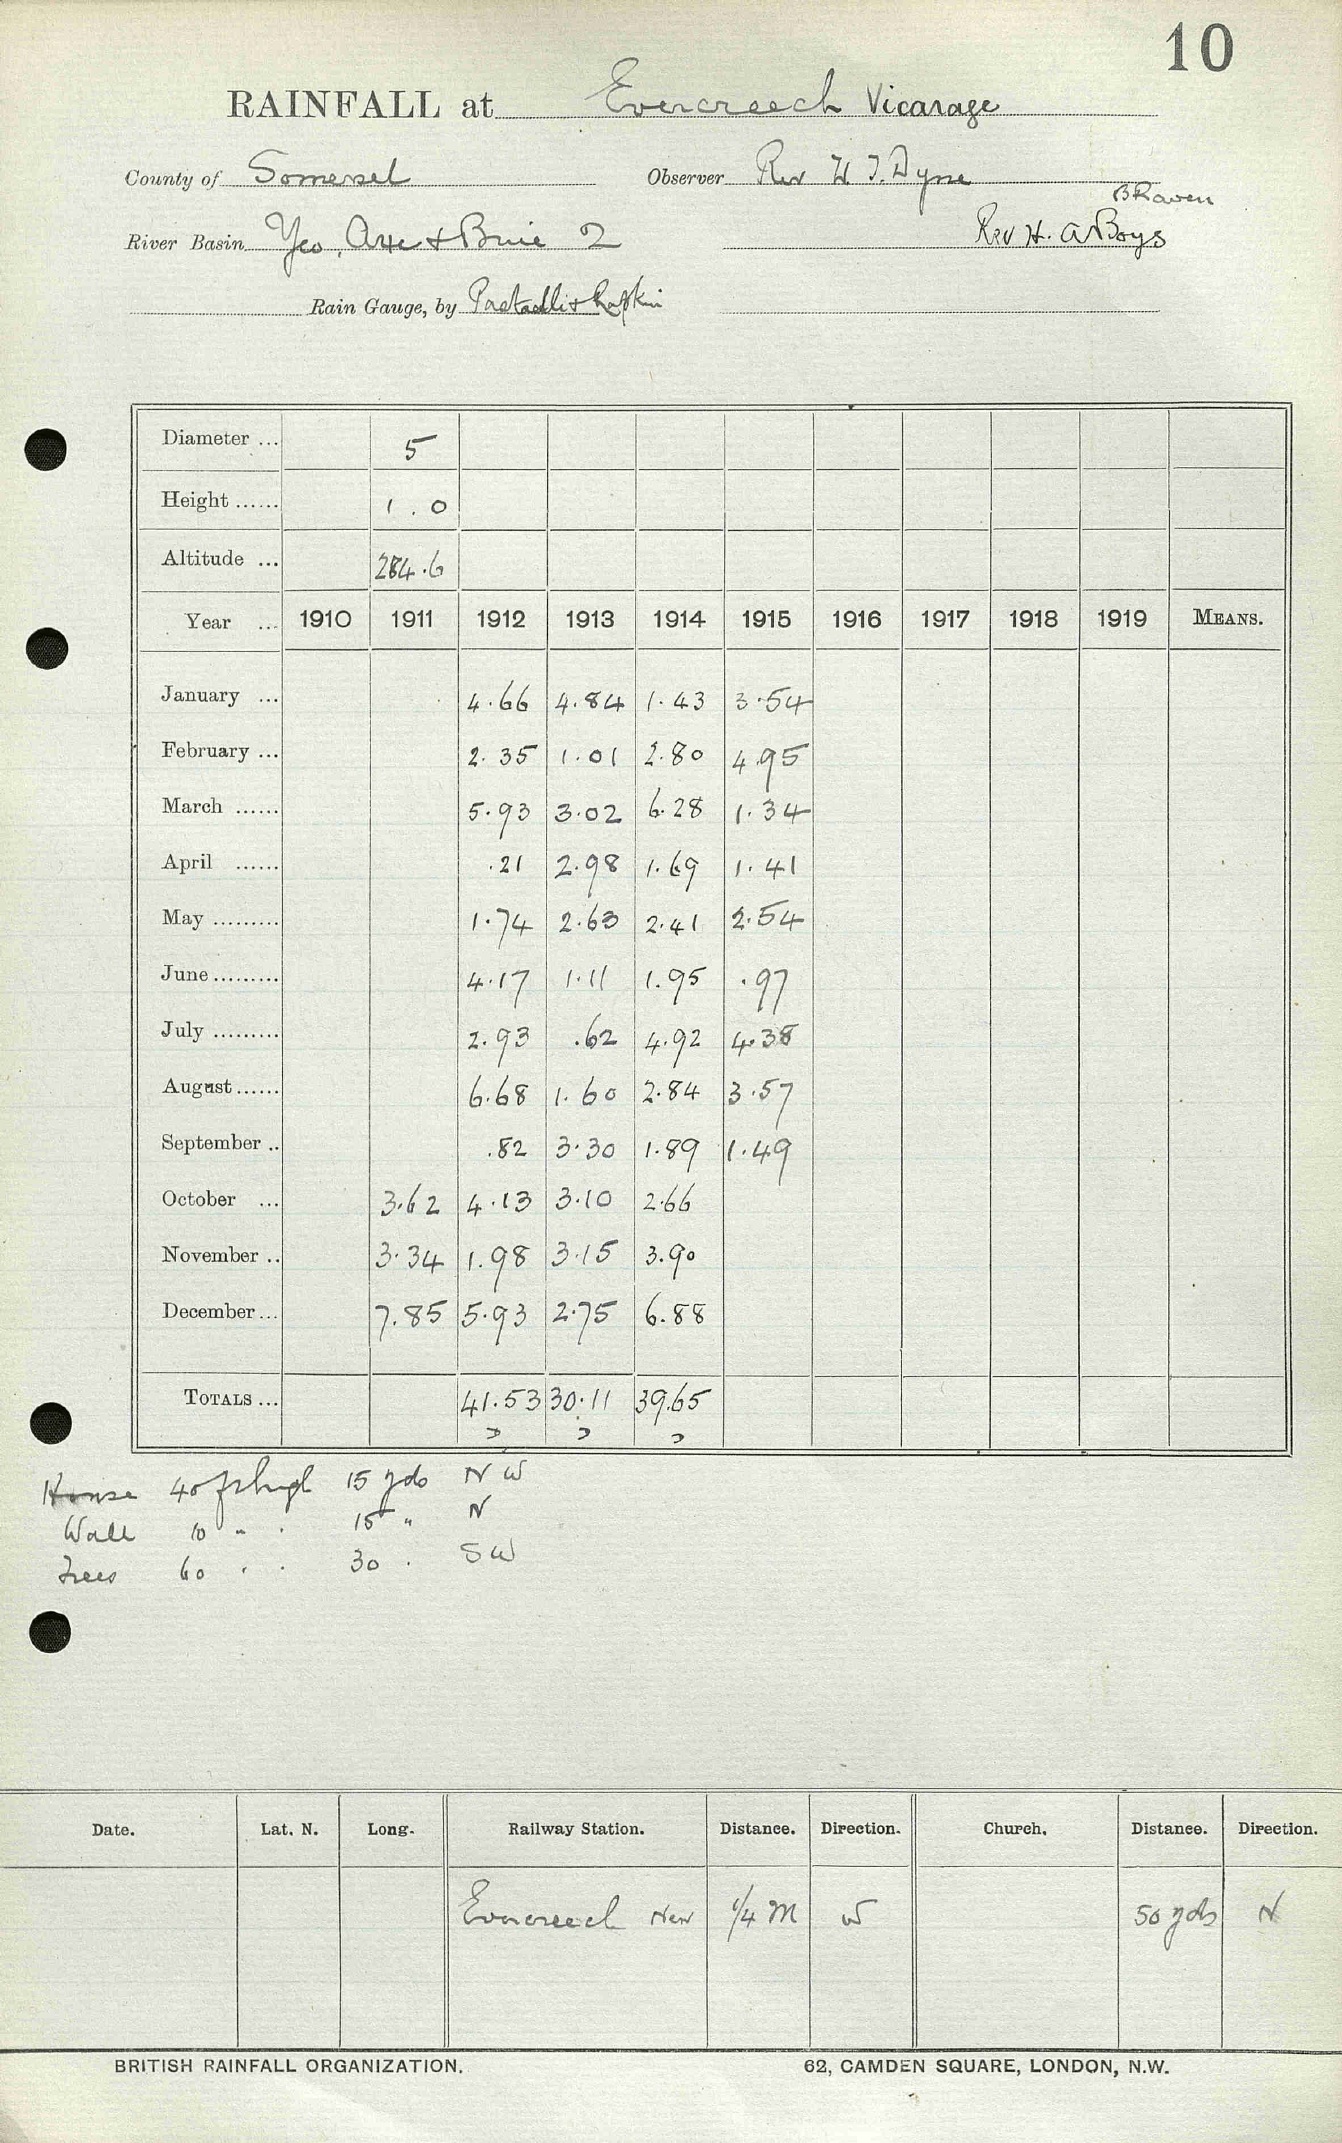 10
RAINFALL at Evercreech Vicarage
County of Somerset Observer Rev W T. Dyne
B Raven
River Basin Yeo, Axe & Brue 2 Rev H. A Boys
Rain Gauge, by Pastorelli & Rapkin
Diameter ... 5
Height ...... 1.0
Altitude ... 284.6
Year ... 1910 1911 1912 1913 1914 1915 1916 1917 1918 1919 MEANS.
January ... 4.66 4.84 1.43 3.54
February ... 2.35 1.01 2.80 4.95
March ...... 5.93 3.02 6.28 1.34
April ...... .21 2.98 1.69 1.41
May ......... 1.74 2.63 2.41 2.54
June ......... 4.17 1.11 1.95 .97
July ......... 2.93 .62 4.92 4.38
August ...... 6.68 1.60 2.84 3.57
September .. .82 3.30 1.89 1.49
October ... 3.62 4.13 3.10 2.66
November .. 3.34 1.98 3.15 3.90
December ... 7.85 5.93 2.75 6.88
TOTALS ... 41.53 30.11 39.65
House 40 ft high 15 yds N W
Wall 10 " . 15 " N
Trees 60 . . 30 . S W
Date. Lat. N. Long. Railway Station. Distance. Direction. Church. Distance. Direction.
Evercreech New 1/4 M W 50 yds N
BRITISH RAINFALL ORGANIZATION. 62, CAMDEN SQUARE, LONDON, N.W.